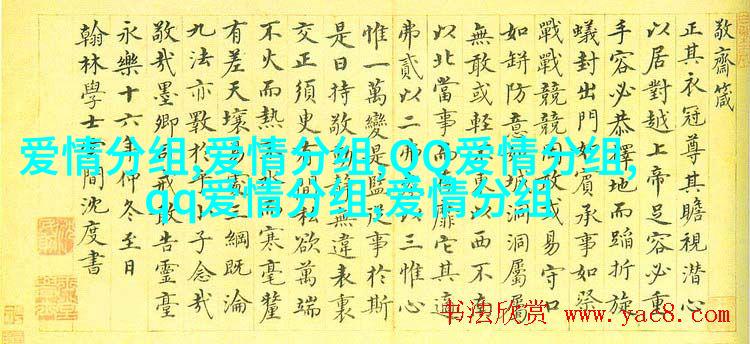 敬齋箴
正其衣冠尊其瞻視潛心
以居對越上帝足容必重
手容必恭擇地而蹈折旋
蟻封出門如賓承事如祭
戰戰兢兢敢或易守口
如缾防意城洞洞屬屬
無敢或輕以西不南
以北當事而靡它其適
弗貳以二弗以三惟心
惟一萬變是監事於斯
是曰持敬無違表裏
交正須臾間私欲萬端
不火而熱不而寒毫釐
有差天壤易處三綱既淪
九法亦斁於乎小子念哉
敬哉墨卿司戒敢告靈臺
永樂十六年仲冬至日
翰林學士雲間沈度書
爱情分组,爱情分组,QQ爱情分组,
qq爱情分组,爱情分组
书法欣赏
www.yac8.com